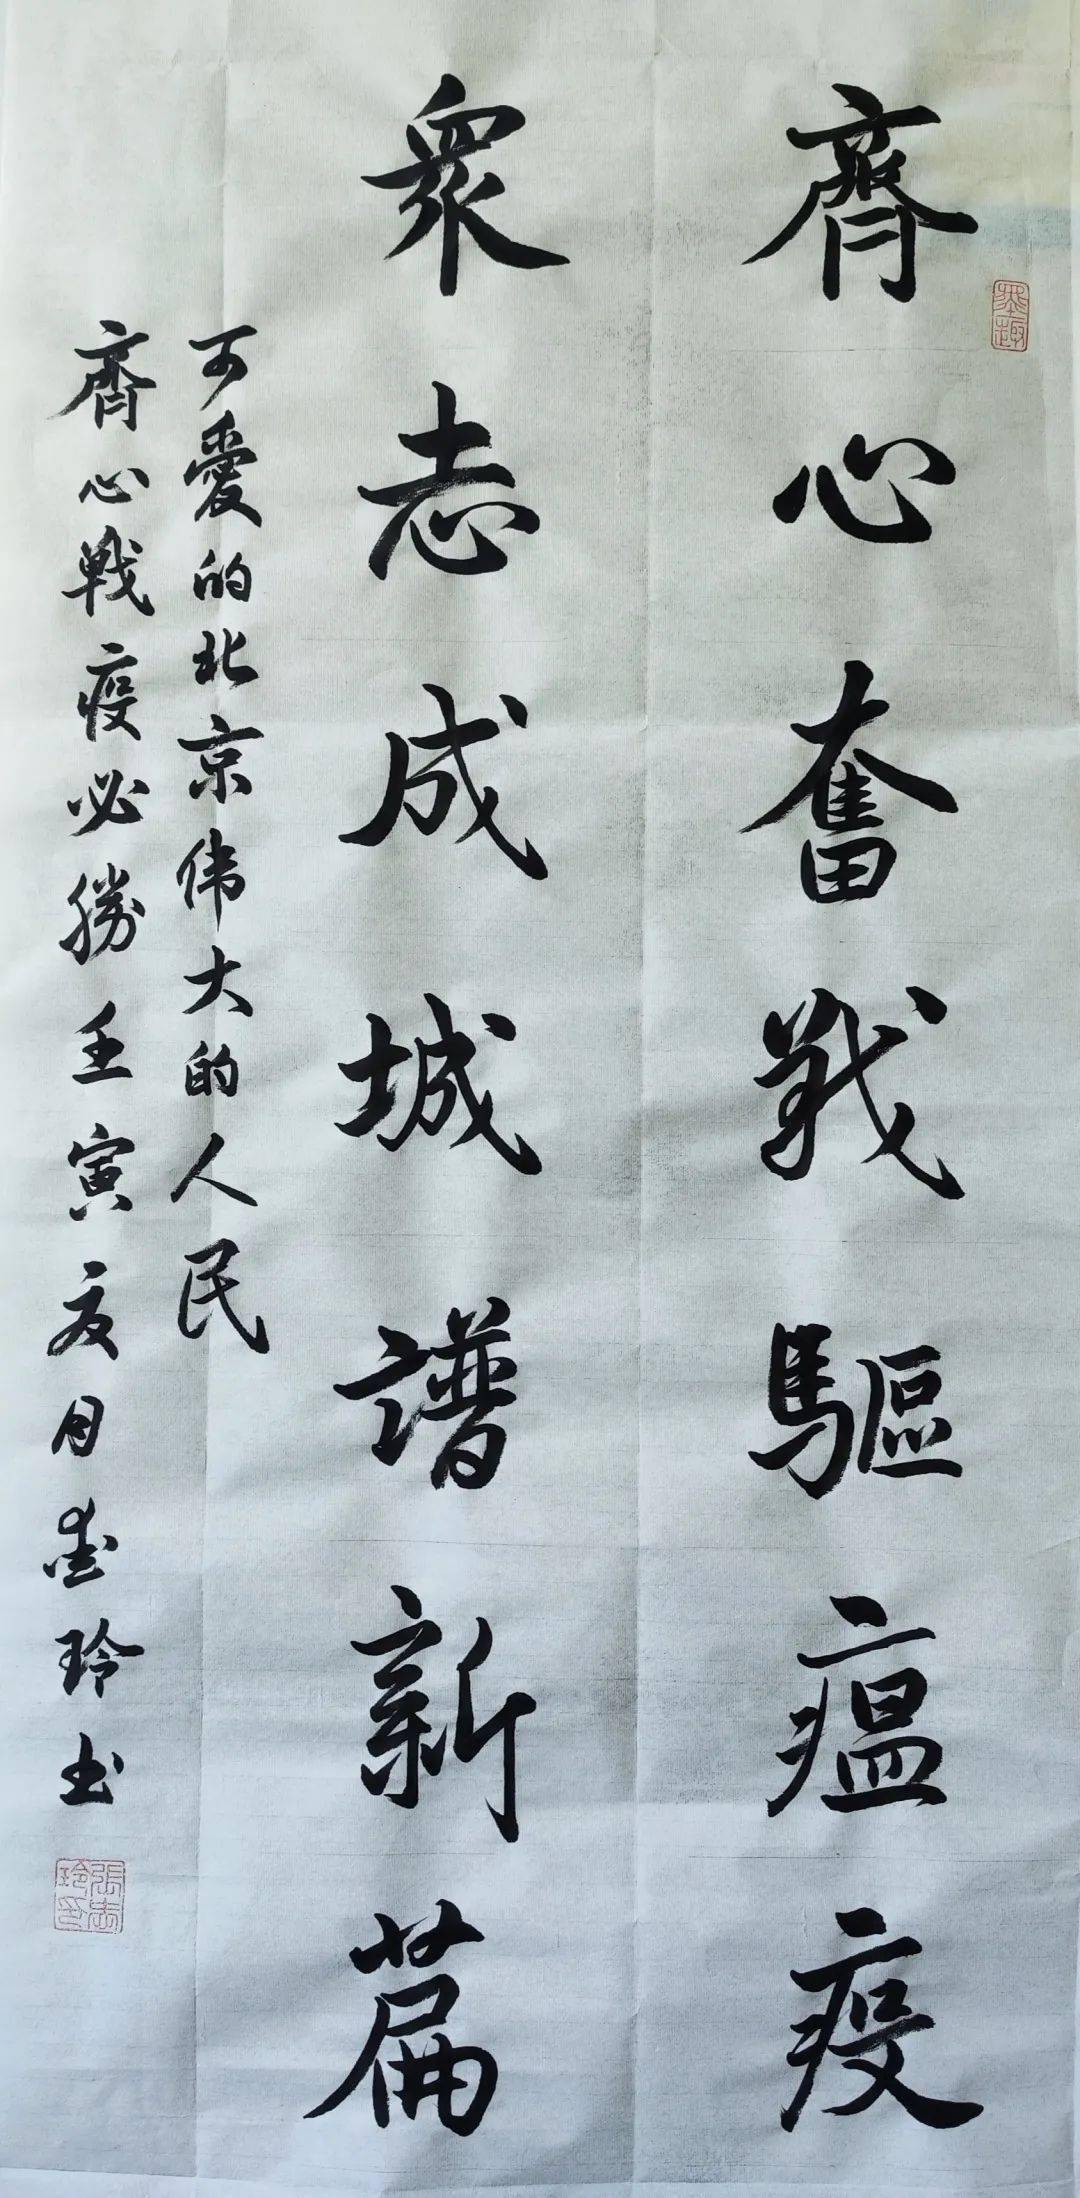 齊心奮戰驅瘟疫
衆志成城譜新篇
可愛的北京伟大的人民
齊心戰疫必勝壬寅夏月志玲书
墨趣
張志玲印